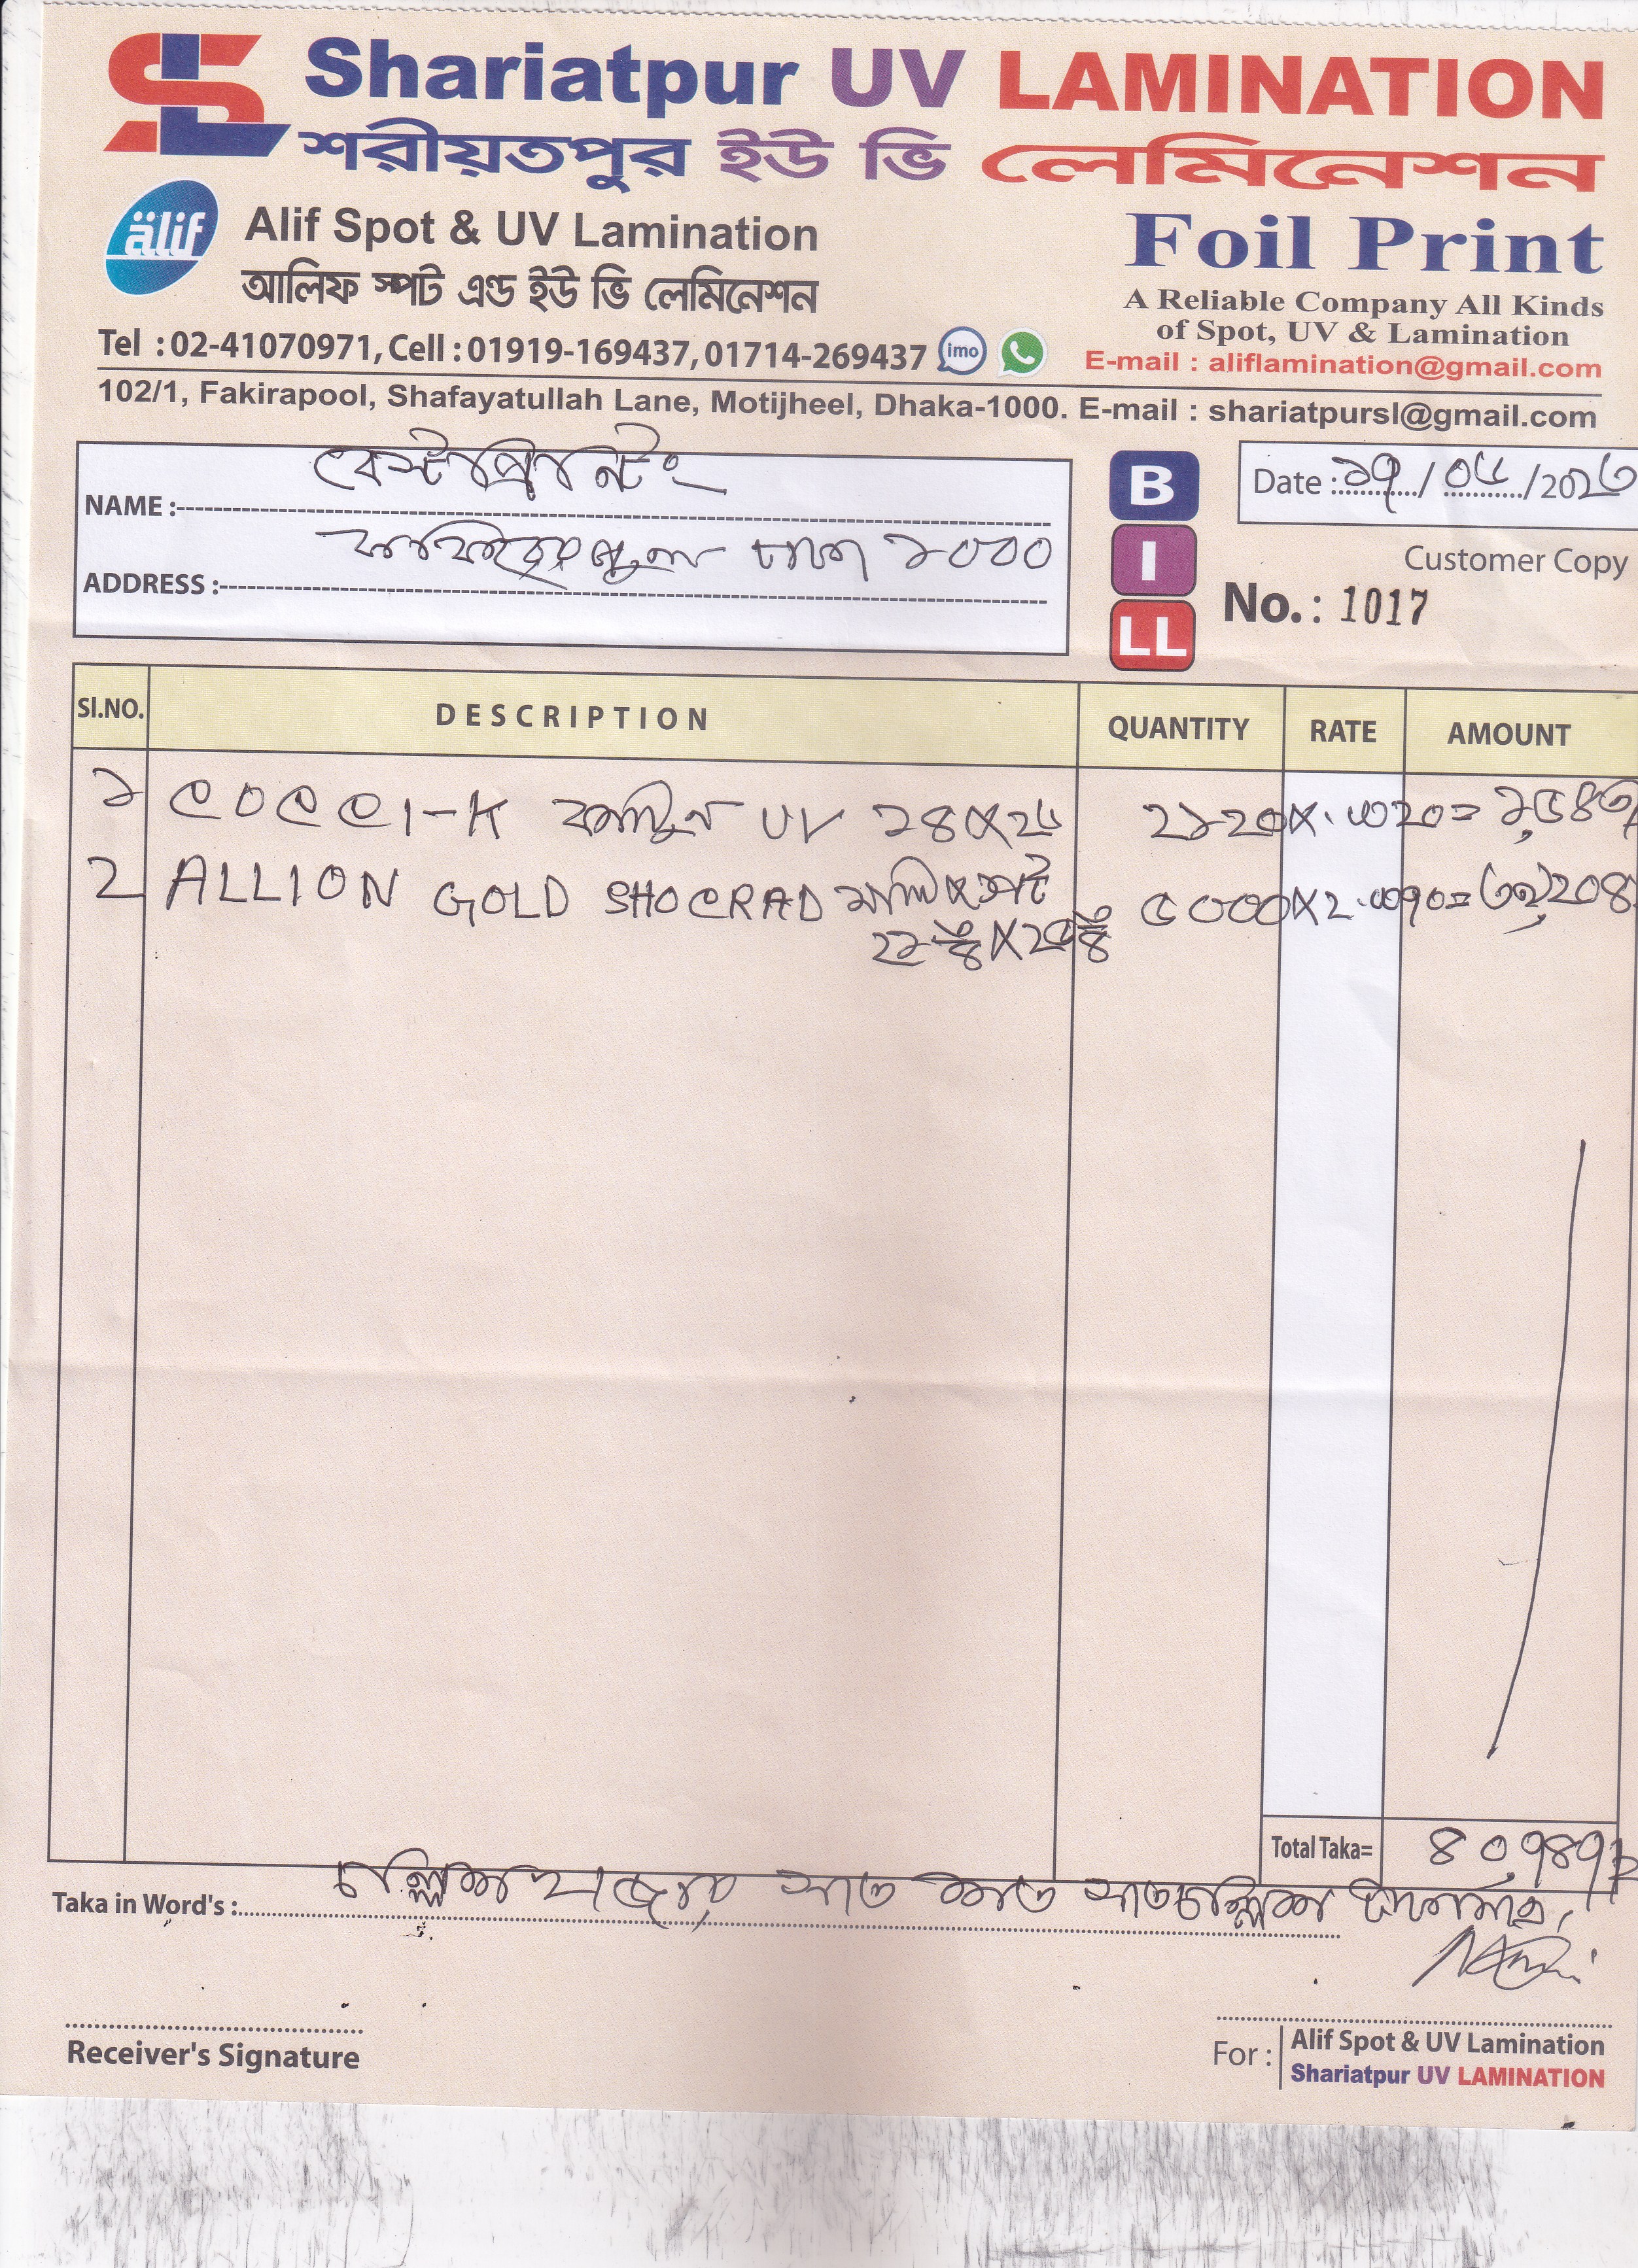 SL Shariatpur UV LAMINATION
শরীয়তপুর ইউ ভি লেমিনেশন
älif Alif Spot & UV Lamination
আলিফ স্পট এণ্ড ইউ ভি লেমিনেশন
Foil Print
A Reliable Company All Kinds
of Spot, UV & Lamination
Tel : 02-41070971, Cell : 01919-169437, 01714-269437 imo
E-mail : aliflamination@gmail.com
102/1, Fakirapool, Shafayatullah Lane, Motijheel, Dhaka-1000. E-mail : shariatpursl@gmail.com
NAME : বেস্ট প্রিন্টিং
ADDRESS : ফকিরাপুল ঢাকা ১০০০
BILL
Date : ১৭/০৮/2023
Customer Copy
No. : 1017
Sl.NO. DESCRIPTION QUANTITY RATE AMOUNT
১ COCCI-K UV ২১২০ X .৭২০ = ১,৫৪৩
২ ALLION GOLD SHOCRAD ৫০০০ X = ৩৯,২০৪
Total Taka= ৪০,৭৪৭
Taka in Word's : চল্লিশ হাজার সাত শত সাতচল্লিশ টাকা মাত্র,
Receiver's Signature
For : Alif Spot & UV Lamination
Shariatpur UV LAMINATION